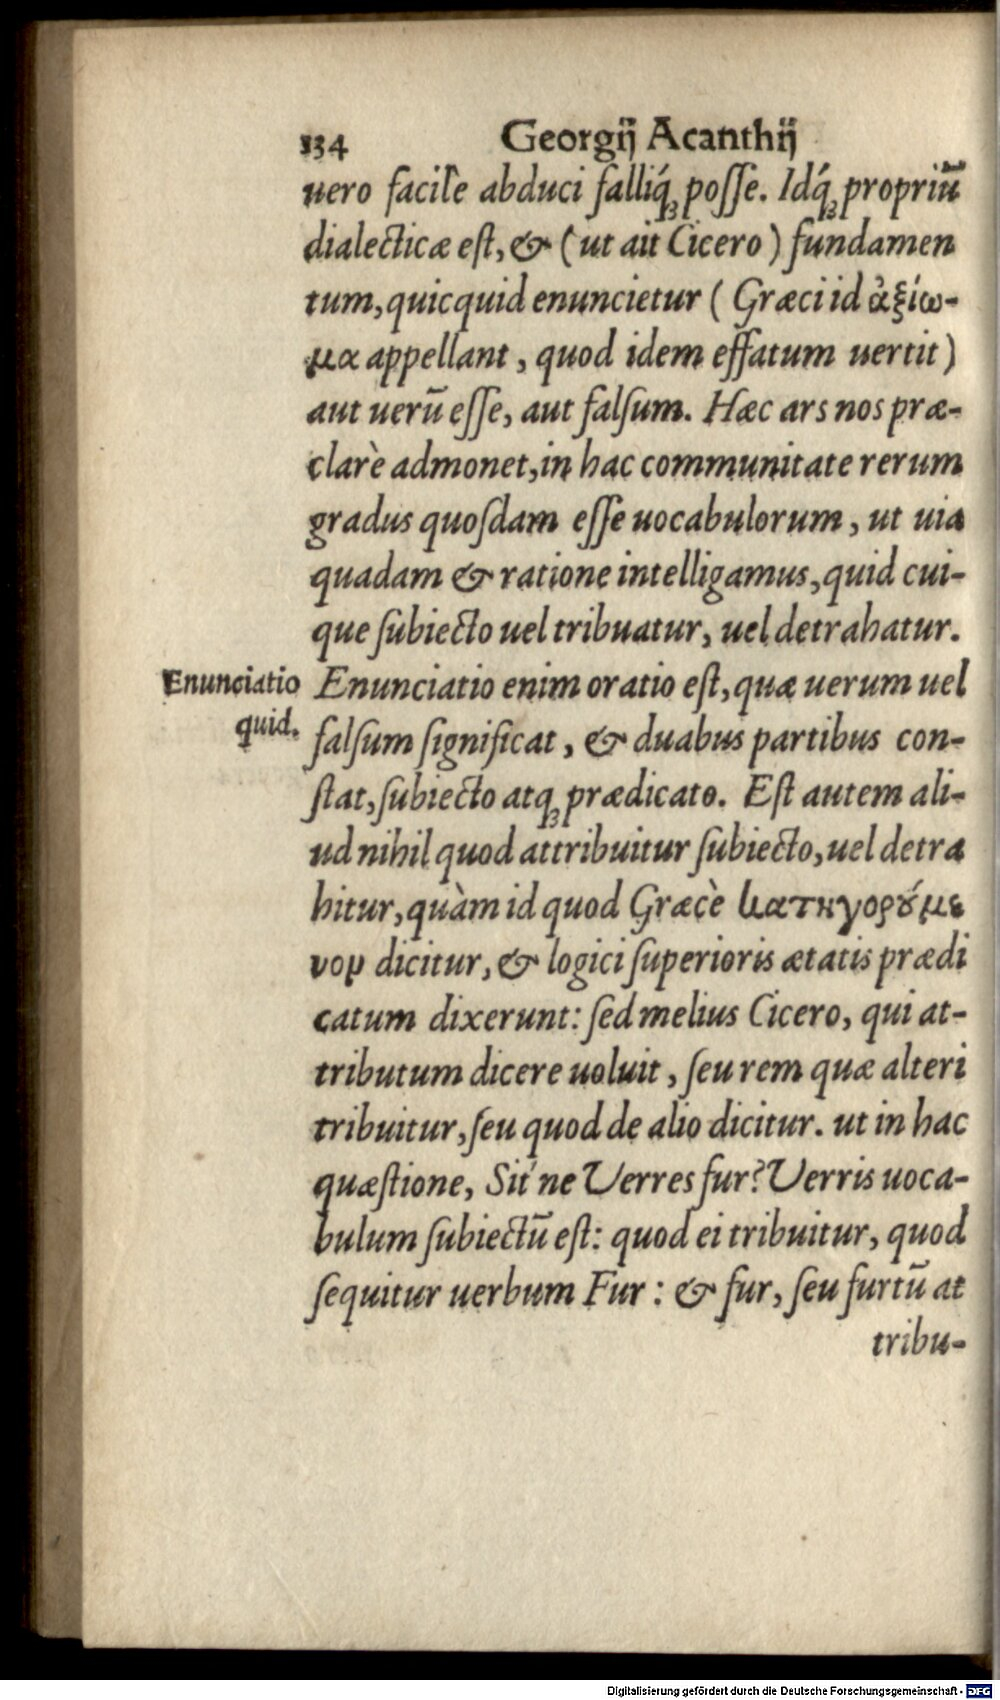 134 Georgij Acanthij
uero facile abduci falliq́ꝫ posse. Idq́ꝫ propriū
dialecticæ est, & (ut ait Cicero) fundamen
tum, quicquid enuncietur (Græci id ἀξίω-
μα appellant, quod idem effatum uertit)
aut uerū esse, aut falsum. Hæc ars nos præ-
clarè admonet, in hac communitate rerum
gradus quosdam esse uocabulorum, ut uia
quadam & ratione intelligamus, quid cui-
que subiecto uel tribuatur, uel detrahatur.
Enunciatio
quid.
Enunciatio enim oratio est, quæ uerum uel
falsum significat, & duabus partibus con-
stat, subiecto atqꝫ prædicato. Est autem ali-
ud nihil quod attribuitur subiecto, uel detra
hitur, quàm id quod Græcè κατηγορȣ́με
νον dicitur, & logici superioris ætatis prædi
catum dixerunt: sed melius Cicero, qui at-
tributum dicere uoluit, seu rem quæ alteri
tribuitur, seu quod de alio dicitur. ut in hac
quæstione, Sit' ne Verres fur? Verris uoca-
bulum subiectū est: quod ei tribuitur, quod
sequitur uerbum Fur: & fur, seu furtū at
tribu-
Digitalisierung gefördert durch die Deutsche Forschungsgemeinschaft - DFG